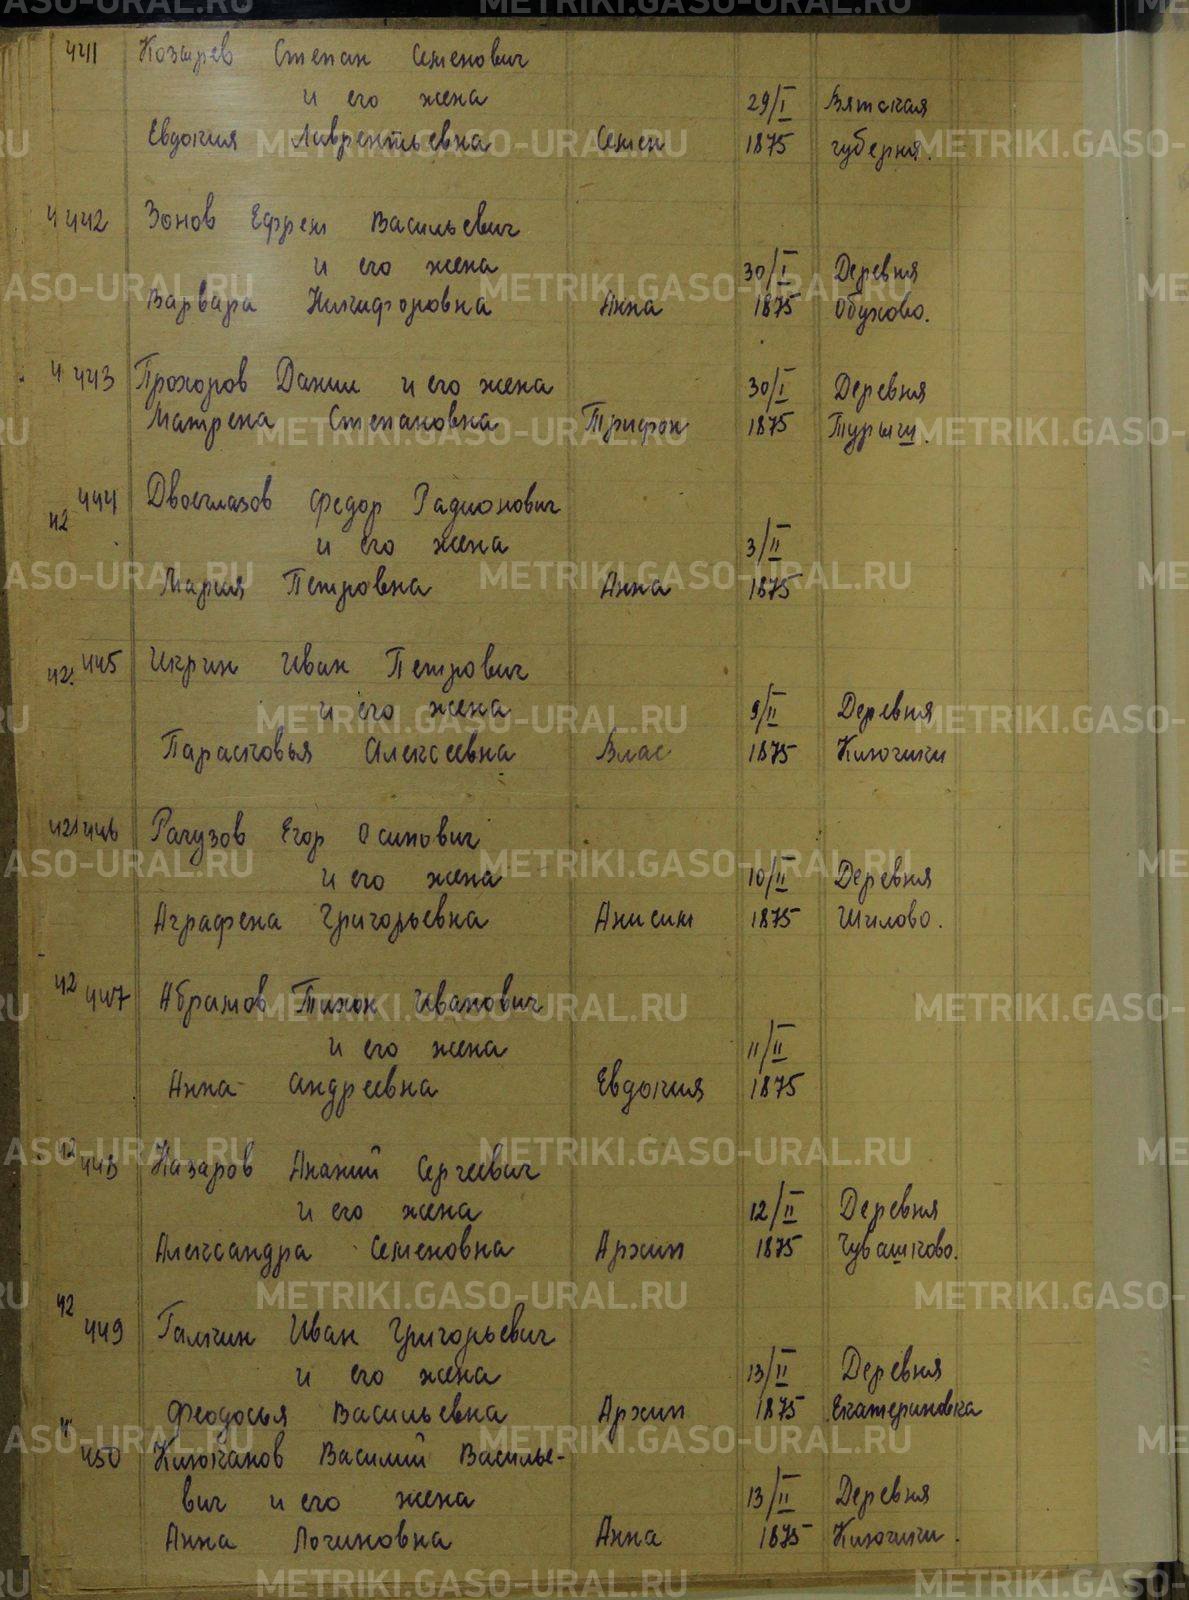 4411 Козырев Степан Семенович
и его жена 29/I Вятская
Евдокия Лаврентьевна Семен 1875 губерня.
4442 Зонов Ефрем Васильевич
и его жена 30/I Деревня
Варвара Никифоровна Анна 1875 Обухово.
4 443 Прохоров Данил и его жена 30/I Деревня
Матрена Степановна Трифон 1875 Турыш.
42 444 Двоеглазов Федор Радионович
и его жена 3/II
Мария Петровна Анна 1875
42 445 Икрин Иван Петрович
и его жена 9/II Деревня
Парасковья Алексеевна Влас 1875 Ключики
42 446 Рагузов Егор Осипович
и его жена 10/II Деревня
Аграфена Григорьевна Анисим 1875 Шилово.
42 447 Абрамов Тихон Иванович
и его жена 11/II
Анна Андреевна Евдокия 1875
42 448 Назаров Ананий Сергеевич
и его жена 12/II Деревня
Александра Семеновна Архип 1875 Чувашково.
42 449 Галкин Иван Григорьевич
и его жена 13/II Деревня
Феодосья Васильевна Архип 1875 Екатериновка
450 Ключанов Василий Василье-
вич и его жена 13/II Деревня
Анна Логиновна Анна 1875 Ключики.
METRIKI.GASO-URAL.RU